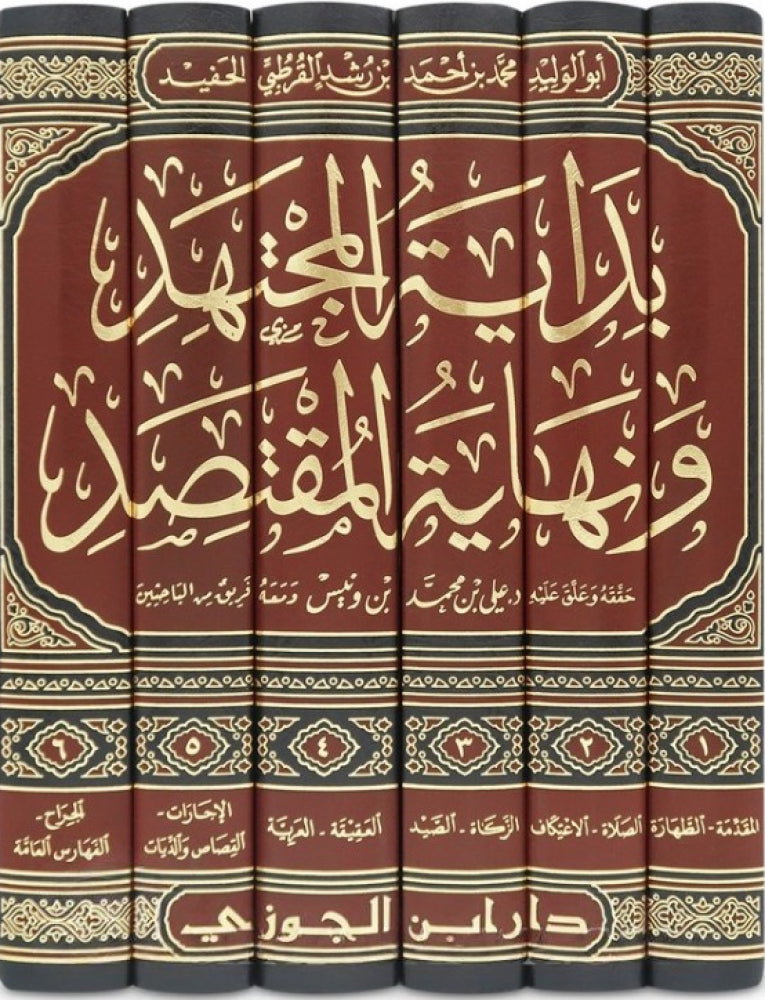 أبو الوليد محمد بن أحمد بن رشد القرطبي الحفيد
بِدَايَةُ المُجْتَهِدِ
وَنِهَايَةُ المُقْتَصِدِ
حَقَّقَهُ وَعَلَّقَ عَلَيْهِ د. علي بن محمد بن ونيس وَمَعَهُ فريق من الباحثين
١ ٢ ٣ ٤ ٥ ٦
المقدمة - الطهارة
الصلاة - الاعتكاف
الزكاة - الصيد
العقيقة - العرية
الإجارات -
القصاص والديات
الجراح -
الفهارس العامة
دار ابن الجوزي